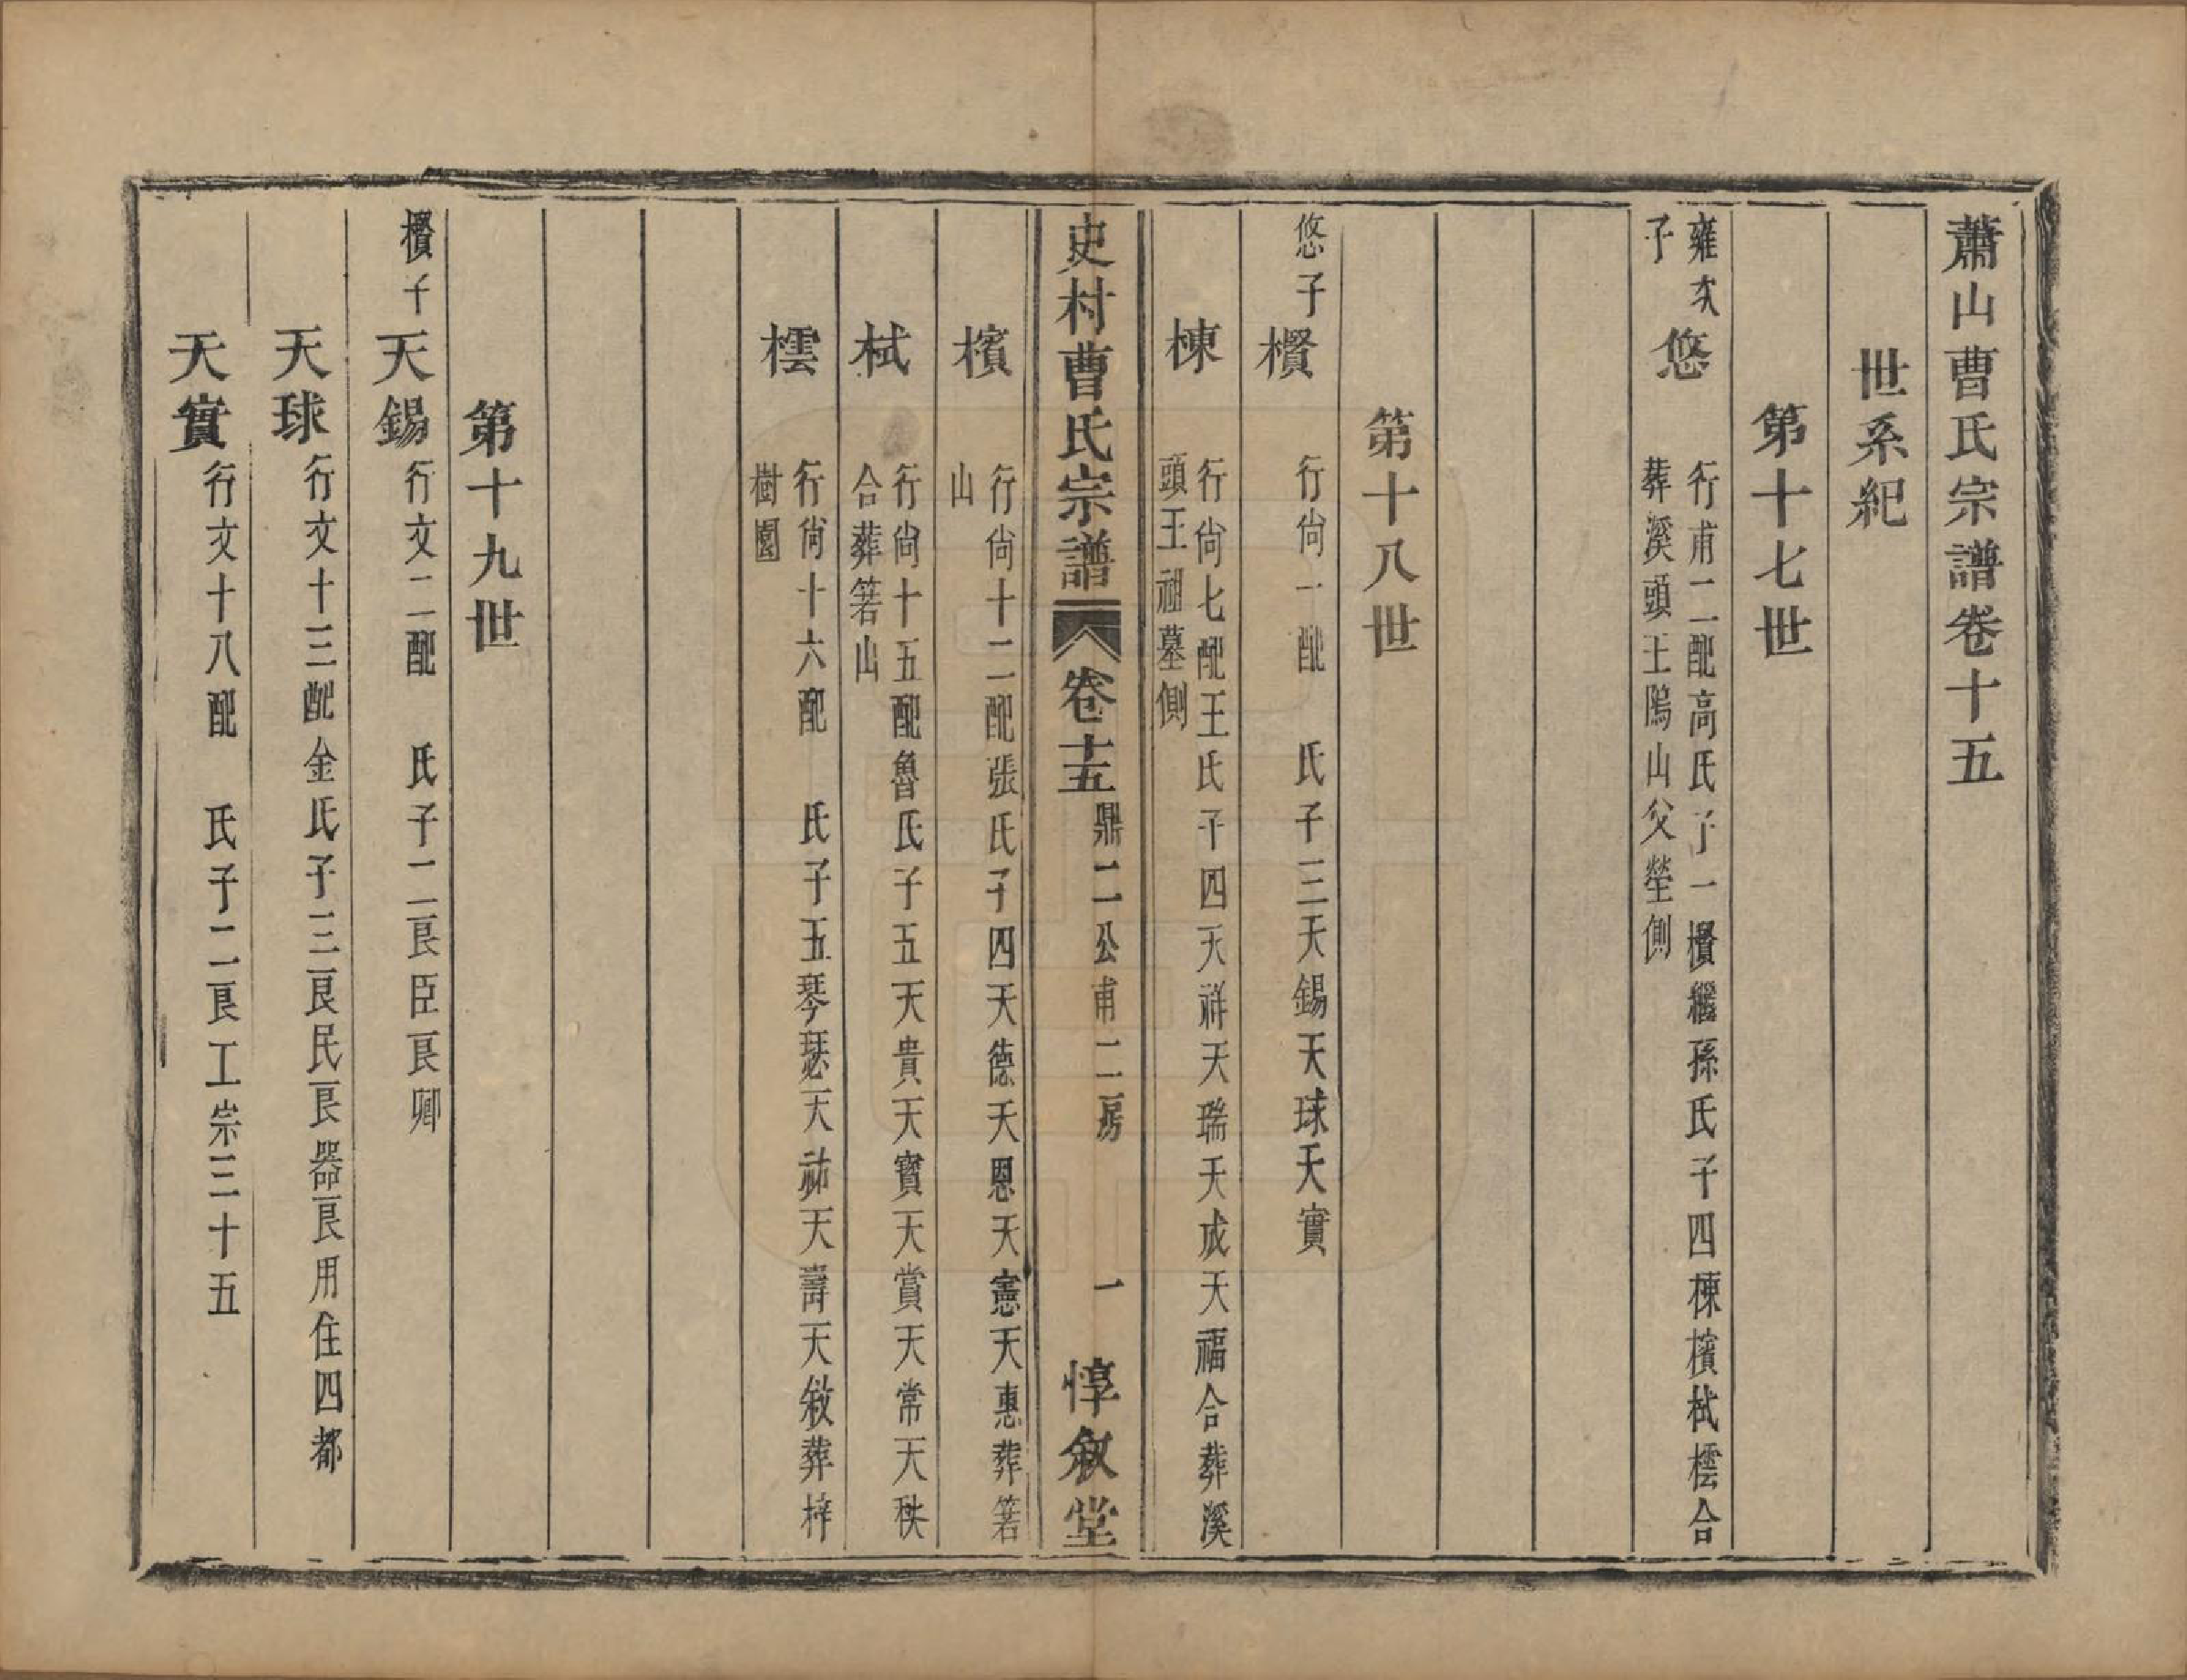 蕭山曹氏宗譜卷十五
世系紀
第十七世
雍次子
悠
行甫二配高氏子一櫕繼孫氏子四棟檳栻橒合
葬溪頭王隖山父塋側
第十八世
悠子
櫕
行尙一配　氏子三天錫天球天實
棟
行尙七配王氏子四天祥天瑞天成天福合葬溪
頭王祖墓側
史村曹氏宗譜　卷十五　鼎二公甫二房　一　惇叙堂
檳
行尙十二配張氏子四天德天恩天憲天惠葬箬
山
栻
行尙十五配魯氏子五天貴天寳天賞天常天秩
合葬箬山
橒
行尙十六配　氏子五琴瑟天祐天壽天敘葬梓
樹園
第十九世
櫕子
天錫
行文二配　氏子二良臣良卿
天球
行文十三配金氏子三良民良器良用住四都
天實
行文十八配　氏子二良工崇三十五